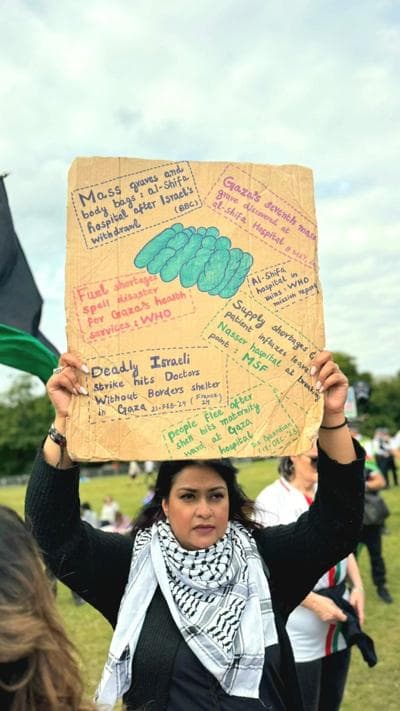 Mass graves and
body bags: Al-Shifa
hospital after Israel's
withdrawl (BBC)
Gaza's seventh mass
grave discovered at
al-shifa Hospital
Fuel shortages
spell disaster
for Gaza's health
services: WHO
Al-Shifa
hospital in
ruins: WHO
mission report
Supply shortages &
patient influxes leave
Nasser hospital at breaking
point: MSF
Deadly Israeli
strike hits Doctors
Without Borders shelter
in Gaza 21-FEB-24 (France 24
people flee after
shell hits maternity
ward at Gaza
hospital